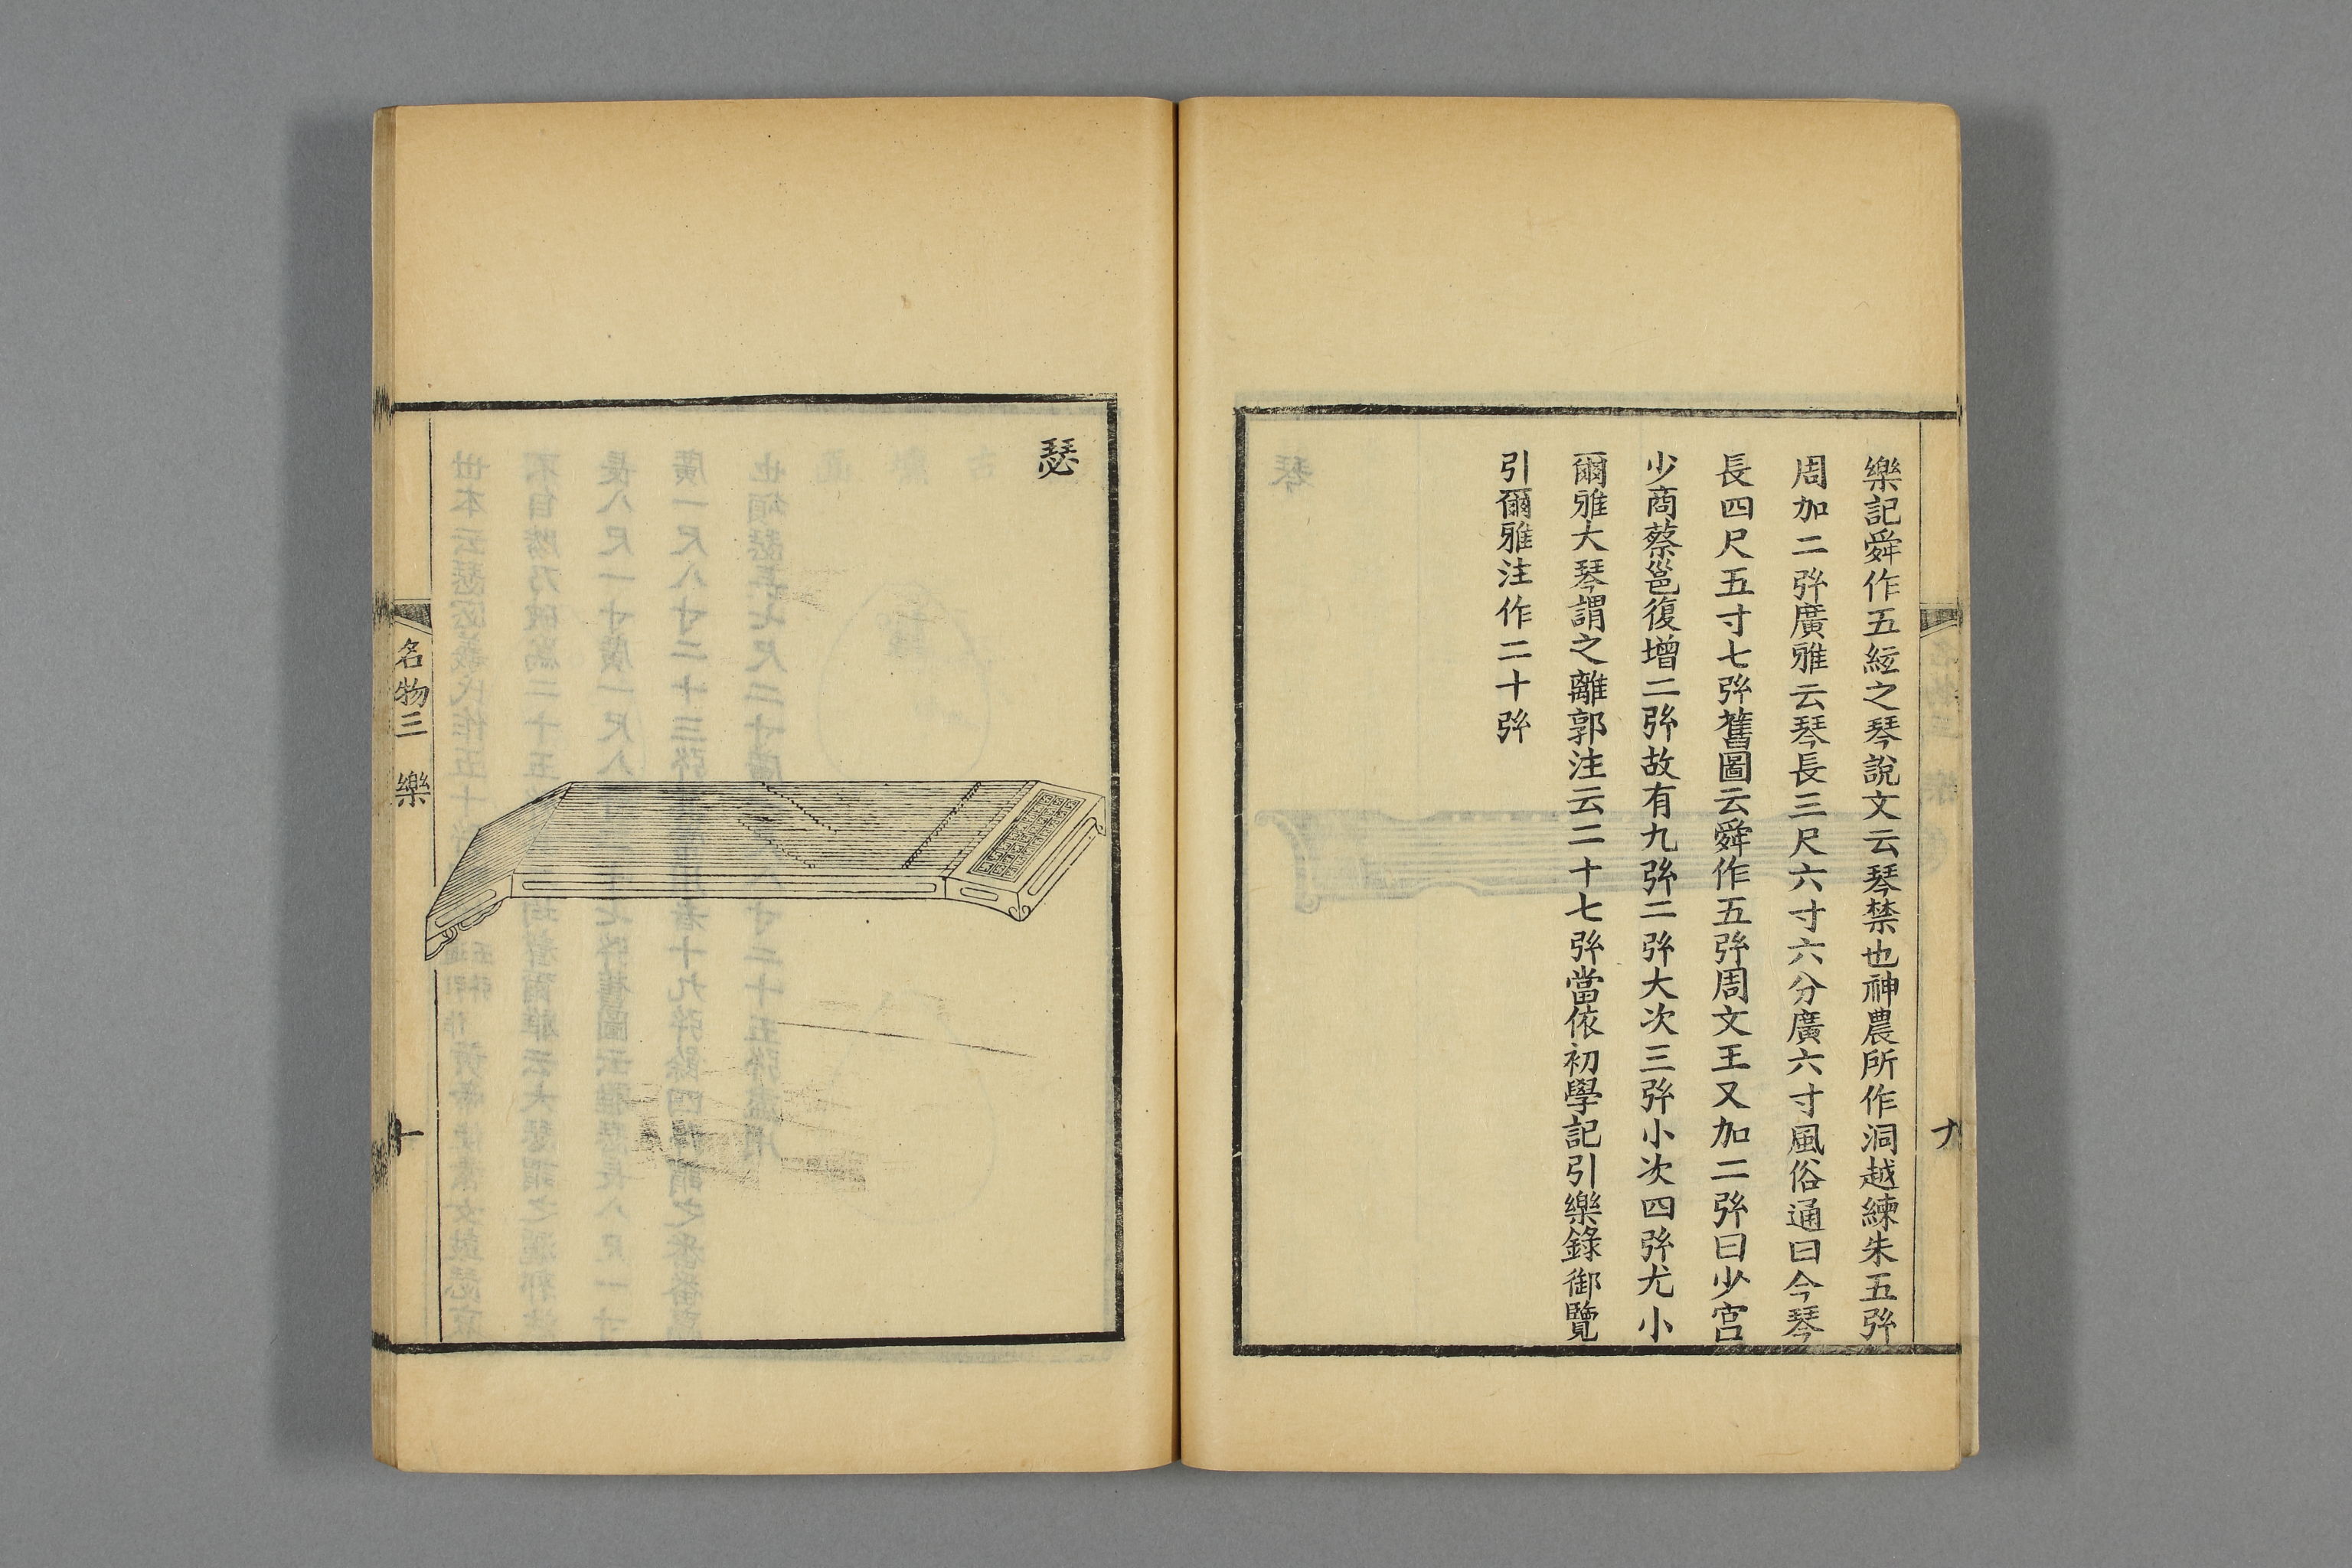 樂記舜作五絃之琴說文云琴禁也神農所作洞越練朱五弦
周加二弦廣雅云琴長三尺六寸六分廣六寸風俗通曰今琴
長四尺五寸七弦舊圖云舜作五弦周文王又加二弦曰少宮
少商蔡邕復增二弦故有九弦二弦大次三弦小次四弦尤小
爾雅大琴謂之離郭注云二十七弦當依初學記引樂錄御覽
引爾雅注作二十弦
九
瑟
名物三 樂
十